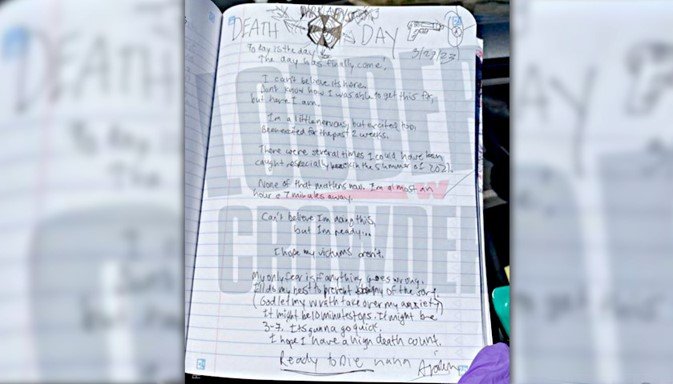 DARK ABYSS
DEATH DAY
3/27/23
Today is the day
The day has finally come!
I can't believe its here.
Dont know how I was able to get this far,
but here I am.
I'm a little nervous, but excited too.
Been excited for the past 2 weeks.
There were several times I could have been
caught especially back in the summer of 2021.
None of that matters now. I'm almost an
hour & 7 minutes away.
Can't believe I'm doing this,
but I'm ready...
I hope my victims aren't.
My only fear is if anything goes wrong.
I'll do my best to prevent any of the sort.
(God let my wrath take over my anxiety)
It might be 10 minutes tops. It might be
3-7. Its gunna go quick.
I hope I have a high death count.
Ready to Die haha
LOUDER
W
CROWDER